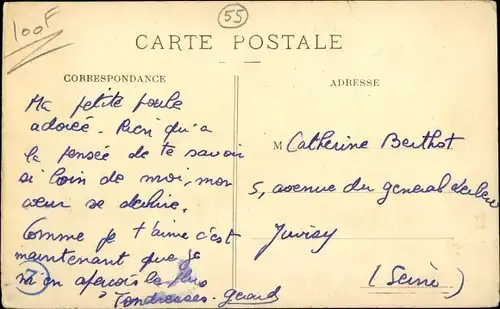 100F
55
CARTE POSTALE
CORRESPONDANCE
ADRESSE
Ma petite poule
adorée. Rien qu'a
la pensée de te savoir
si loin de moi, mon
cœur se déchire.
Comme je t'aime c'est
maintenant que je
m'en aperçois le plus
Tendresses. Gerard
M Catherine Berthot
5, avenue du general Leclerc
Juvisy
(Seine)